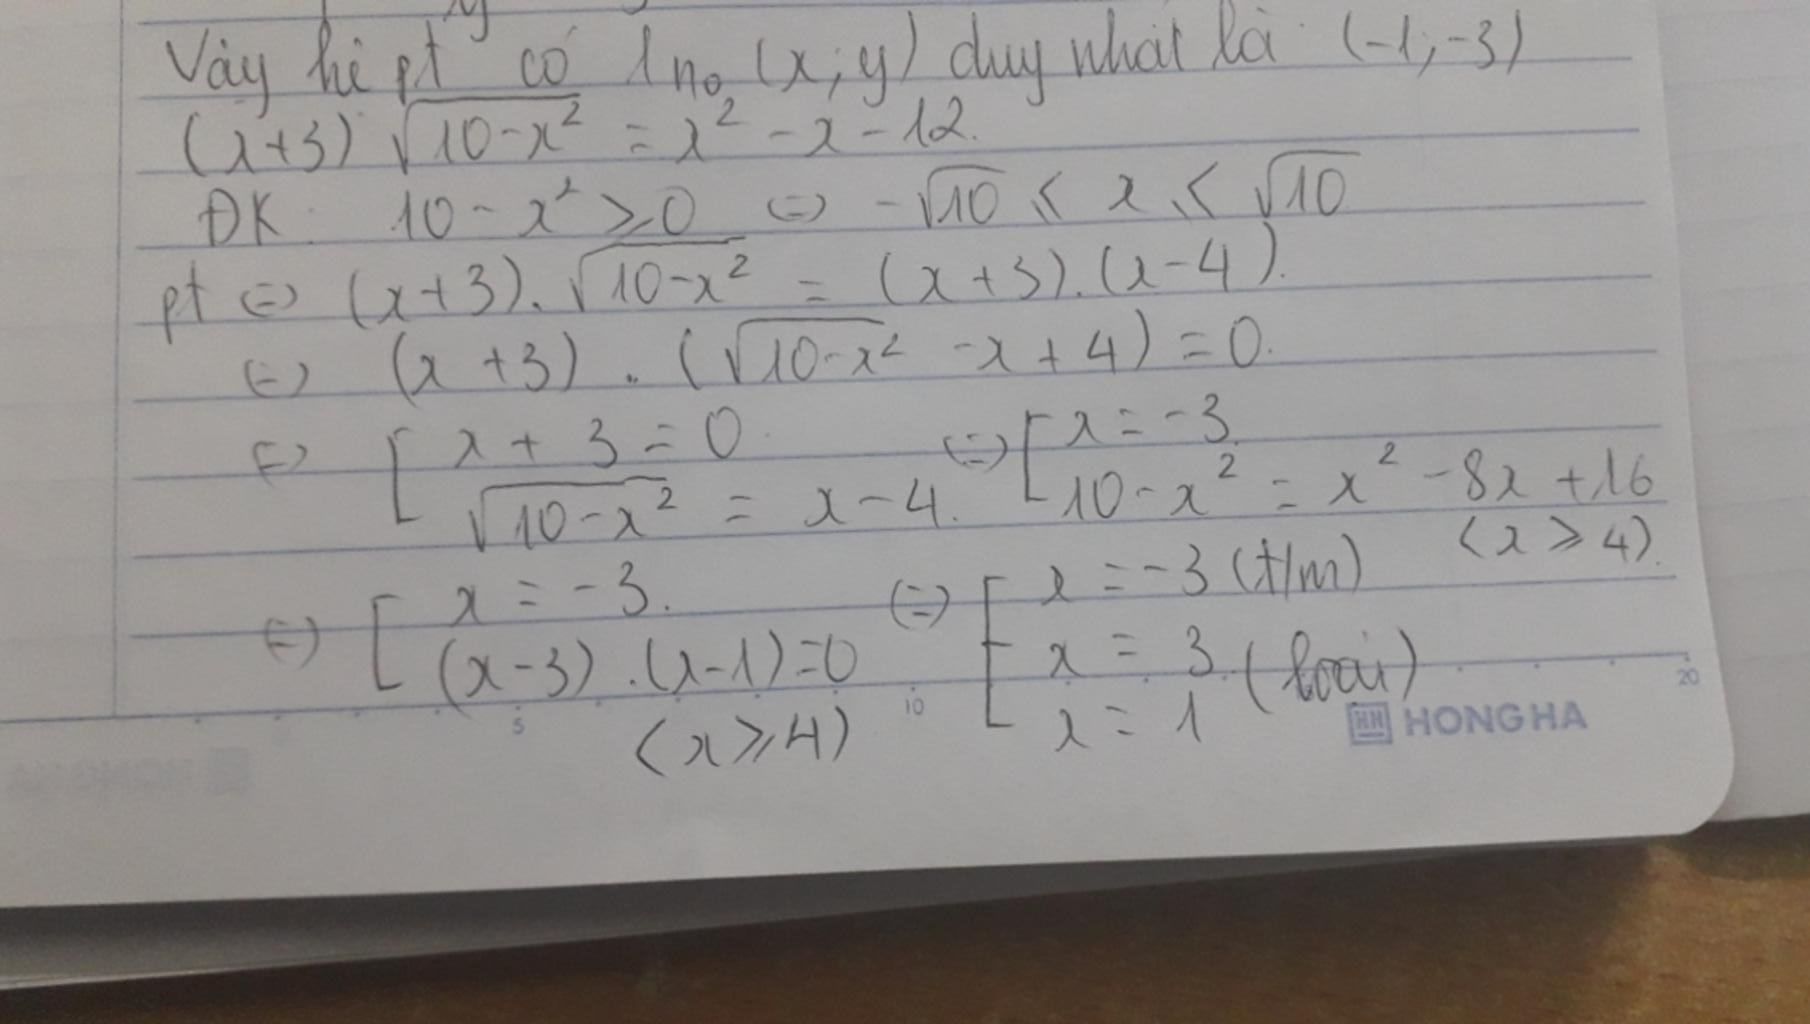 Vậy hệ pt có 1 no (x; y) duy nhất là (-1; -3)
(x+3) √(10-x²) = x² - x - 12.
ĐK: 10 - x² ≥ 0 <=> -√10 ≤ x ≤ √10
pt <=> (x+3). √(10-x²) = (x+3).(x-4).
<=> (x+3) . (√(10-x²) - x + 4) = 0.
<=> [ x + 3 = 0. <=> [ x = -3
√(10-x²) = x - 4. 10 - x² = x² - 8x + 16
(x ≥ 4).
<=> [ x = -3. <=> [ x = -3 (t/m)
(x-3).(x-1)=0 x = 3 (loại)
(x ≥ 4) x = 1
5 10 20
HH HONG HA